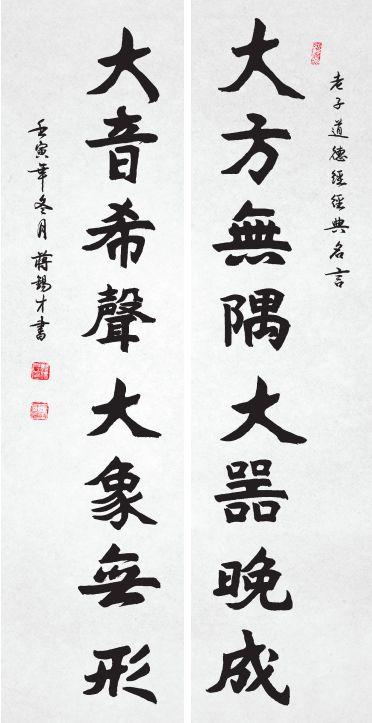 老子道德經經典名言
大方無隅大器晚成
大音希聲大象無形
壬寅年冬月蔣錫才書